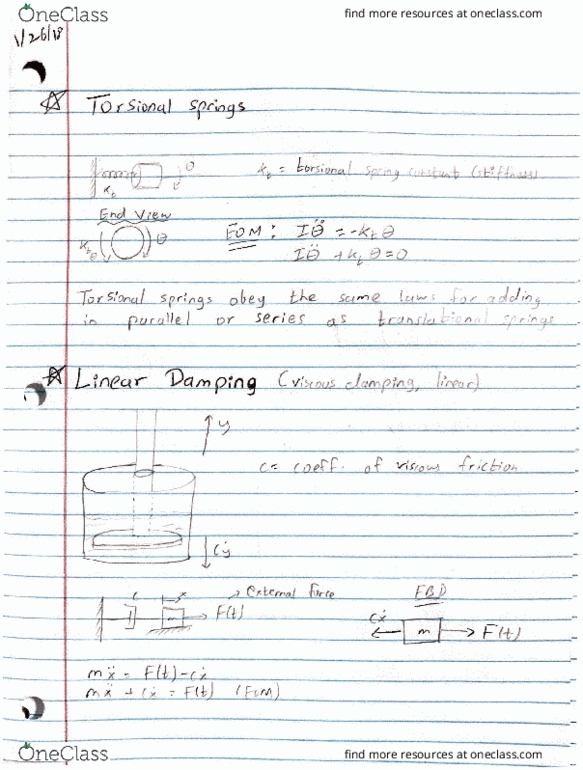 OneClass
find more resources at oneclass.com
1/26/18
Torsional springs
kt = torsional spring constant (stiffness)
kt
θ
End View
ktθ
θ
EOM: Iθ̈ = -ktθ
Iθ̈ + ktθ = 0
Torsional springs obey the same laws for adding
in parallel or series as translational springs
Linear Damping (viscous damping, linear)
y
c = coeff. of viscous friction
cẏ
c
x
→ External force
FBD
m
F(t)
cẋ
m
F(t)
mẍ = F(t) - cẋ
mẍ + cẋ = F(t) (EOM)
OneClass
find more resources at oneclass.com